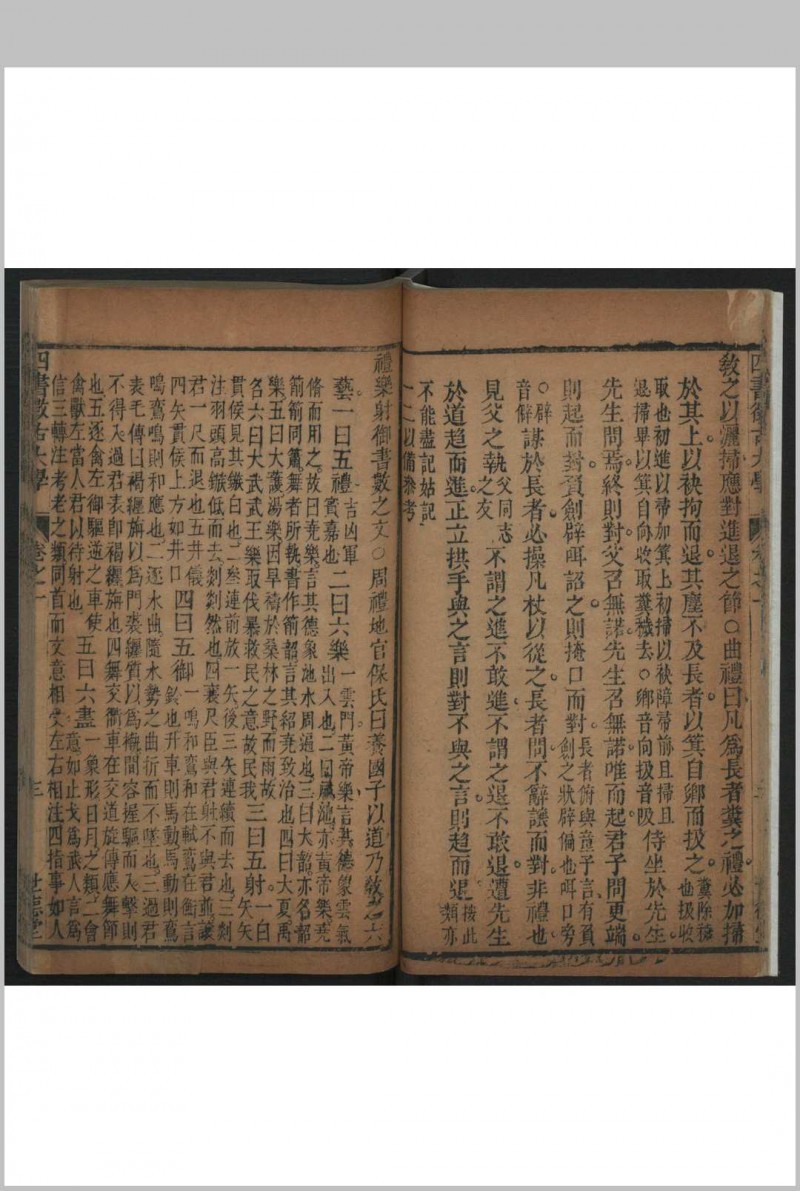 教之以灑掃應對進退之節○曲禮曰凡爲長者糞之禮必加帚
於其上以袂拘而退其塵不及長者以箕自鄉而扱之糞除穢也扱收
取也初進以帚加箕上初掃以袂障帚前且掃且
退掃畢以箕自向收取糞穢去○鄉音向扱音吸侍坐於先生
先生問焉終則對父召無諾先生召無諾唯而起君子問更端
則起而對負劍辟咡詔之則掩口而對長者俯與童子言有負
劍之狀辟偏也咡口旁
○辟音僻謀於長者必操几杖以從之長者問不辭讓而對非禮也
見父之執父同志之友不謂之進不敢進不謂之退不敢退遭先生
於道趨而進正立拱手與之言則對不與之言則趨而退按此類亦
不能盡記姑記
一二以備叅考
禮樂射御書數之文○周禮地官保氏曰養國子以道乃敎之六
藝一曰五禮吉凶軍賓嘉也二曰六樂一雲門黃帝樂言其德象雲氣
出入也二曰咸池亦黃帝樂堯
脩而用之故曰堯樂言其德象池水周遍也三曰大韶亦名韶
箾箾同簫舞者所執書作箾韶言其紹堯致治也四曰大夏禹
樂五曰大濩湯樂因旱禱於桑林之野而雨故
名六曰大武武王樂取伐暴救民之意故民我三曰五射一白矢矢
貫侯見其鏃白也二叅連前放一矢後三矢連續而去也三剡
注羽頭高鏃低而去剡剡然也四襄尺臣與君射不與君並讓
君一尺而退也五井儀
四矢貫侯上方如井口四曰五御一鳴和鸞和在軾鸞在衡言
鈴也升車則馬動馬動則鸞
鳴鸞鳴則和應也二逐水曲隨水勢之曲衍而不墜也三過君
表毛傳曰褐纏旃以爲門裘纏質以爲槸間容握驅而入擊則
不得入過君表即褐纏旃也四舞交衢車在交道旋傳應舞節
也五逐禽左御驅逆之車使
禽獸左當人君以待射也五曰六畫一象形日月之類二會
意如止戈爲武人言爲
信三轉注考老之類同首而文意相受左右相注四指事如人
四書徵古大學
卷之一
三
世德堂